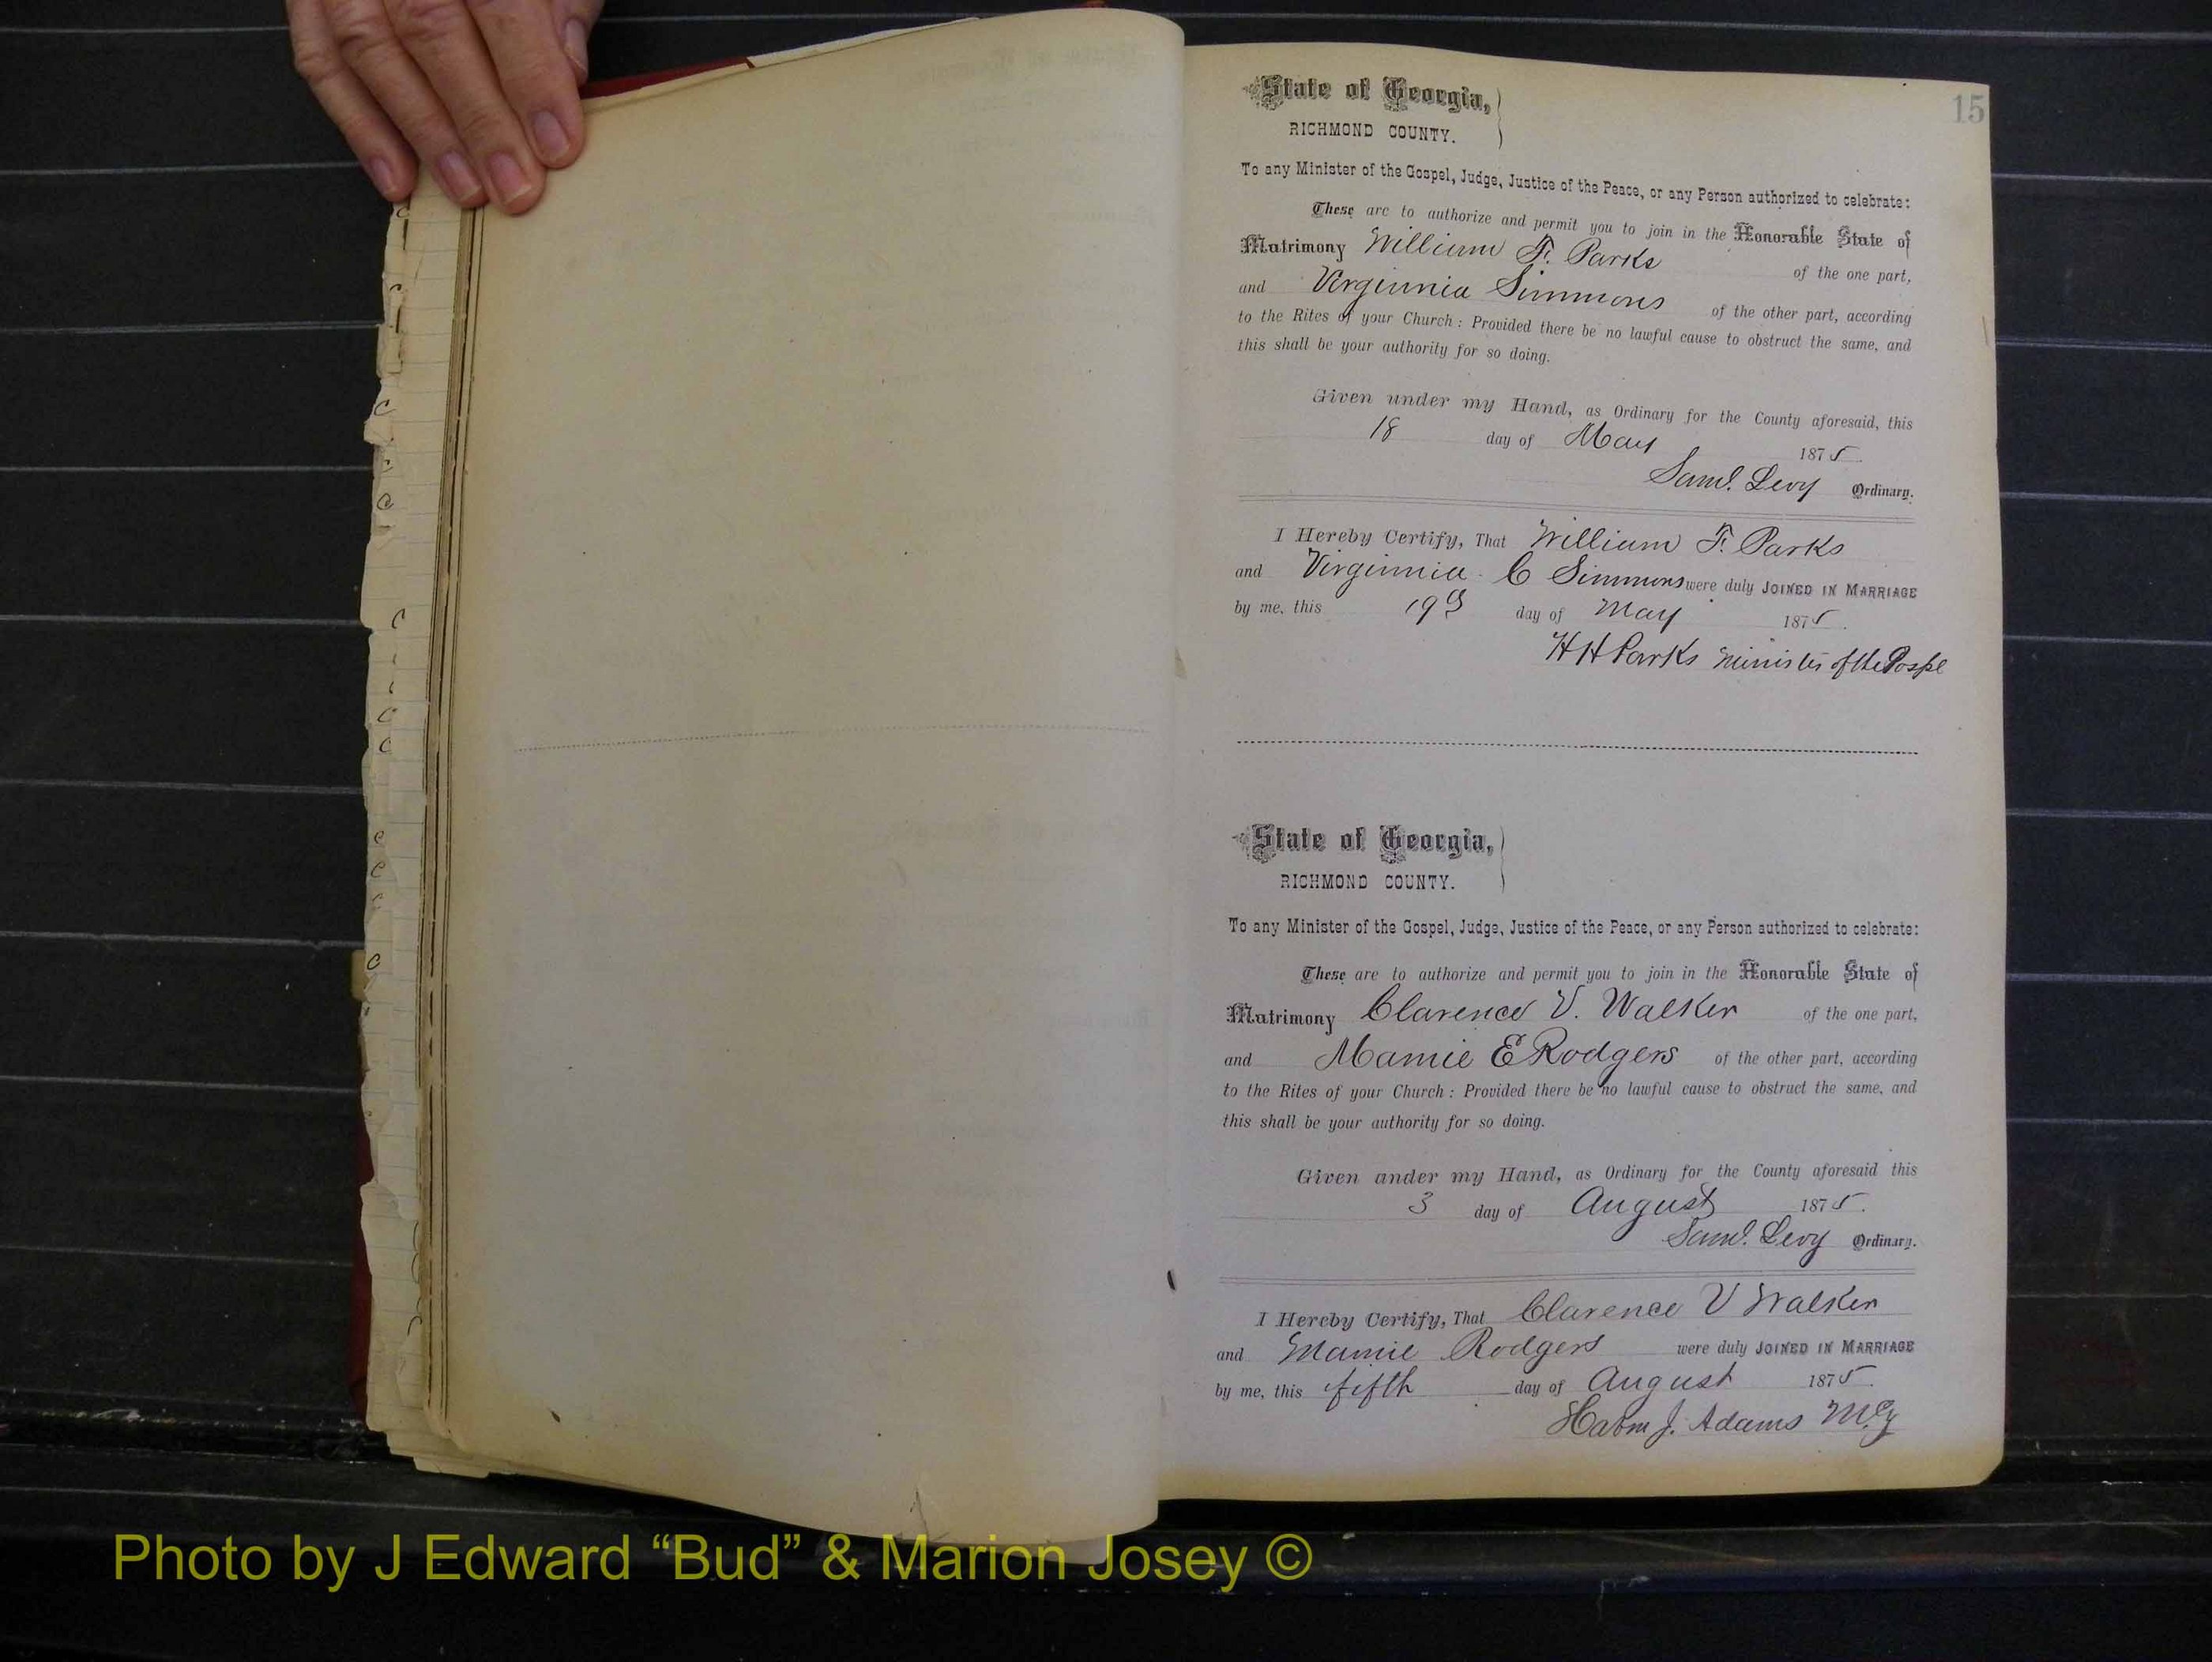 15
State of Georgia,
RICHMOND COUNTY.
To any Minister of the Gospel, Judge, Justice of the Peace, or any Person authorized to celebrate:
These are to authorize and permit you to join in the Honorable State of
Matrimony William F. Parks of the one part,
and Virginnia Simmons of the other part, according
to the Rites of your Church: Provided there be no lawful cause to obstruct the same, and
this shall be your authority for so doing.
Given under my Hand, as Ordinary for the County aforesaid, this
18 day of May 1875.
Saml. Levy Ordinary.
I Hereby Certify, That William F. Parks
and Virginnia C Simmons were duly JOINED IN MARRIAGE
by me, this day of May 1875.
H H Parks Minister of the Gospel
State of Georgia,
RICHMOND COUNTY.
To any Minister of the Gospel, Judge, Justice of the Peace, or any Person authorized to celebrate:
These are to authorize and permit you to join in the Honorable State of
Matrimony Clarence V. Walker of the one part,
and Mamie E Rodgers of the other part, according
to the Rites of your Church: Provided there be no lawful cause to obstruct the same, and
this shall be your authority for so doing.
Given under my Hand, as Ordinary for the County aforesaid this
3 day of August 1875.
Saml. Levy Ordinary.
I Hereby Certify, That Clarence V Walker
and Mamie Rodgers were duly JOINED IN MARRIAGE
by me, this fifth day of August 1875.
J. Adams
Photo by J Edward “Bud” & Marion Josey ©